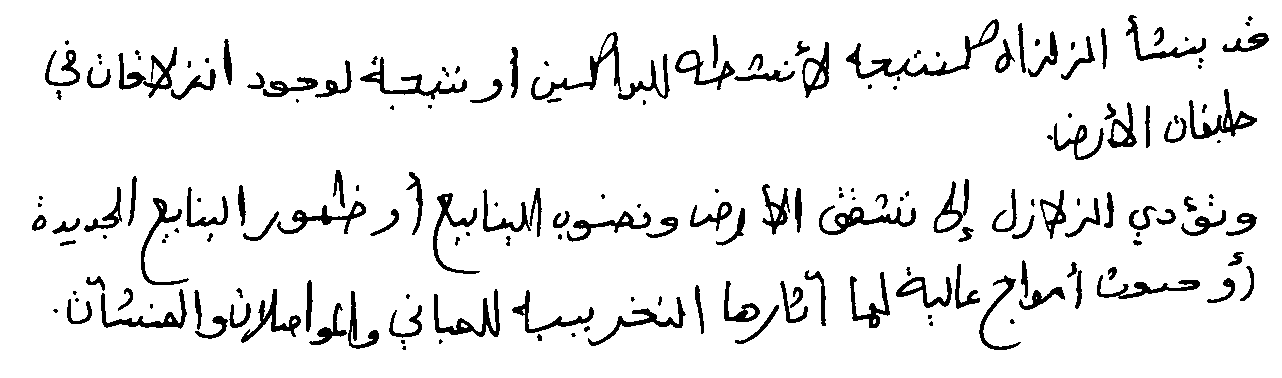 قد ينشأ الزلزال كنتيجة لأنشطة البراكين أو نتيجة لوجود انزلاقات في
طبقات الأرض.
وتؤدي الزلازل إلى تشقق الأرض ونضوب الينابيع أو ظهور الينابيع الجديدة
أو حدوث أمواج عالية لها آثارها التخريبية للمباني والمواصلات والمنشآت.